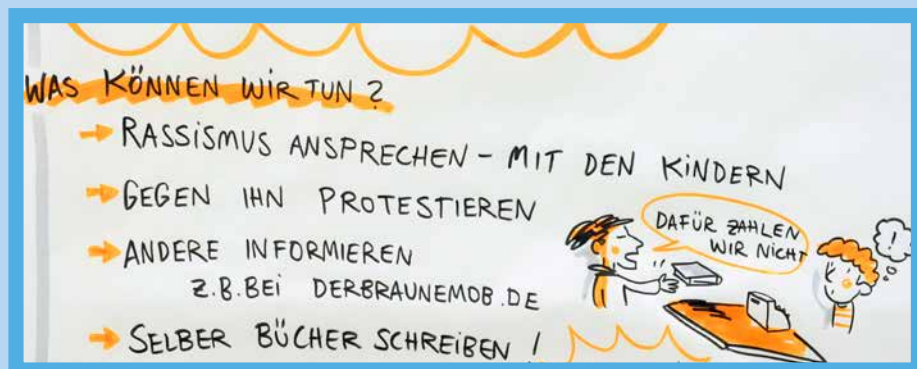 WAS KÖNNEN WIR TUN?
→ RASSISMUS ANSPRECHEN - MIT DEN KINDERN
→ GEGEN IHN PROTESTIEREN
→ ANDERE INFORMIEREN
Z.B. BEI DERBRAUNEMOB.DE
→ SELBER BÜCHER SCHREIBEN!
DAFÜR ZAHLEN
WIR NICHT
!